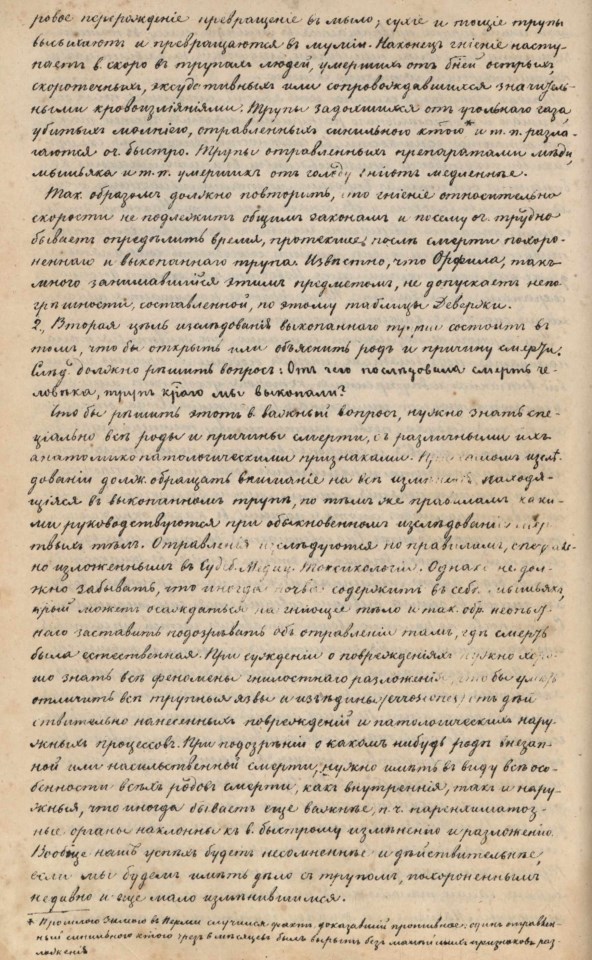 ровое перерожденіе превращеніе въ мыло; сухіе и тощіе трупы
высыхаютъ и превращаются въ муміи. Наконецъ гніеніе насту-
паетъ в. скоро въ трупахъ людей, умершихъ отъ бѣней острыхъ,
скоротечныхъ, эксудативныхъ или сопровождавшихся значитель-
ными кровоизліяніями. Трупы задохшихся отъ угольнаго газа,
убитыхъ молніею, отравленныхъ синильною к̃тою* и т. п. разла-
гаются оч. быстро. Трупы отравленныхъ препаратами мѣди,
мышьяка и т. п. умершихъ отъ голоду гніютъ медленнѣе.
Так. образомъ должно повторить, что гніеніе относительно
скорости не подлежитъ общимъ законамъ и посему оч. трудно
бываетъ опредѣлить время, протекшее послѣ смерти похоро-
неннаго и выкопаннаго трупа. Извѣстно, что Орфила, такъ
много занимавшійся этимъ предметомъ, не допускаетъ непо-
грѣшности, составленной, по этому таблицы Девержи.
2, Вторая цѣль изслѣдованія выкопаннаго трупа состоитъ въ
томъ, что бы открыть или объяснить родъ и причину смерти.
Слѣд. должно рѣшить вопросъ: Отъ чего послѣдовала смерть че-
ловѣка, трупъ кṕаго мы выкопали?
Что бы рѣшить этотъ в. важный вопросъ, нужно знать спе-
ціально всѣ роды и причины смерти, съ различными ихъ
анатомико патологическими признаками. При самомъ изслѣ-
дованіи долж. обращать вниманіе на всѣ измѣненія, находя-
щіяся въ выкопанномъ трупѣ, по тѣмъ же правиламъ каки-
ми руководствуются при обыкновенномъ изслѣдованіи мер-
твыхъ тѣлъ. Отравленія изслѣдуются по правиламъ, подроб-
но изложеннымъ въ Судеб. Медиц. Токсихологіи. Однако не дол-
жно забывать, что иногда почва содержитъ въ себѣ мышьякъ,
к̃рый можетъ осаждаться на гніющее тѣло и так. обр. неопыт-
наго заставить подозрѣвать объ отравленіи тамъ, гдѣ смерть
была естественная. При сужденіи о поврежденіяхъ нужно хоро-
шо знать всѣ феномены гнилостнаго разложенія, что бы умѣть
отличить всѣ трупныя язвы и изъѣдины (errosiones) отъ дѣй
ствительно нанесенныхъ поврежденій и патологическихъ нару-
жныхъ процессовъ. При подозрѣніи о какомъ нибудь родѣ внезап-
ной или насильственной смерти, нужно имѣть въ виду всѣ осо-
бенности всѣхъ родовъ смерти, какъ внутреннія, такъ и нару-
жныя, что иногда бываетъ еще важнѣе, п. ч. паренхиматоз-
ные органы наклонны къ в. быстрому измѣненію и разложенію.
Вообще нашъ успѣхъ будетъ несомнѣннѣе и дѣйствительнѣе,
если мы будемъ имѣть дѣло съ трупомъ, похороненнымъ
недавно и еще мало измѣнившимся.
* Прошлою зимою въ Перми случился фактъ доказавшій противное: одинъ отравлен-
ный синильною к̃тою чрезъ 2 мѣсяца былъ вырытъ безъ малѣйшихъ признаковъ раз-
ложенія